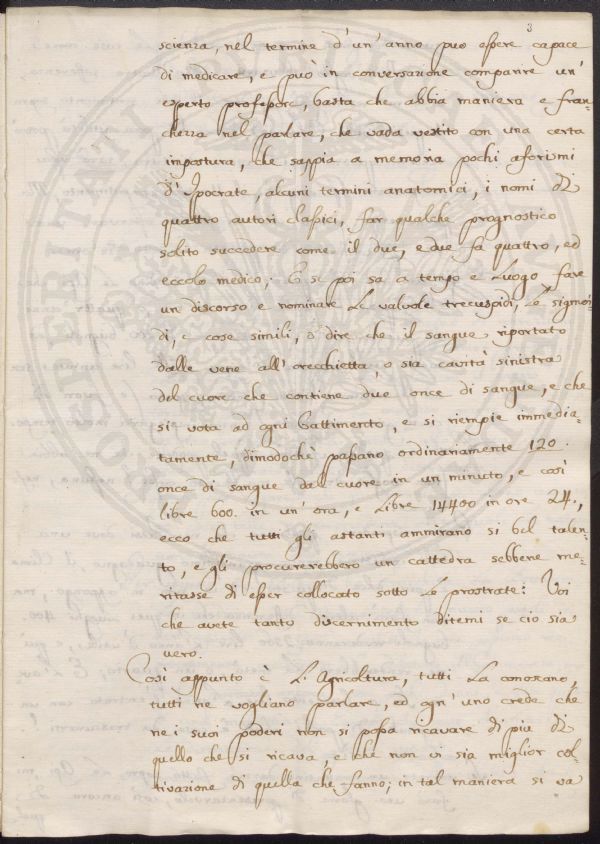 3
scienza, nel termine d'un'anno può essere capace
di medicare, e può in conversazione comparire un'
esperto professore, basta che abbia maniera e fran-
chezza nel parlare, che vada vestito con una certa
impostura, che sappia a memoria pochi aforismi
d'Ipocrate, alcuni termini anatomici, i nomi di
quattro autori classici, far qualche prognostico
solito succedere come il due, e due fa quattro, ed
eccolo medico; E se poi sa a tempo e Luogo fare
un discorso e nominare Le valvole trecuspidi, Le sigmoi-
di, e cose simili, o dire che il sangue riportato
dalle vene all'orecchietta o sia cavità sinistra
del cuore che contiene due once di sangue, e che
si vota ad ogni battimento, e si riempie immedia-
tamente, dimodochè passano ordinariamente 120.
once di sangue dal cuore in un minuto, e così
libre 600. in un'ora, e Libre 14400 in ore 24.,
ecco che tutti gli astanti ammirano si bel talen-
to, e gli procurerebbero un cattedra sebbene me-
ritasse di esser collocato sotto Le prostrate: Voi
che avete tanto discernimento ditemi se ciò sia
vero.
Così appunto è L'Agricoltura, tutti La conoscano,
tutti ne vogliano parlare, ed ogn'uno crede che
ne i suoi poderi non si possa ricavare di più di
quello che si ricava, e che non vi sia miglior col-
tivazione di quella che fanno; in tal maniera si va